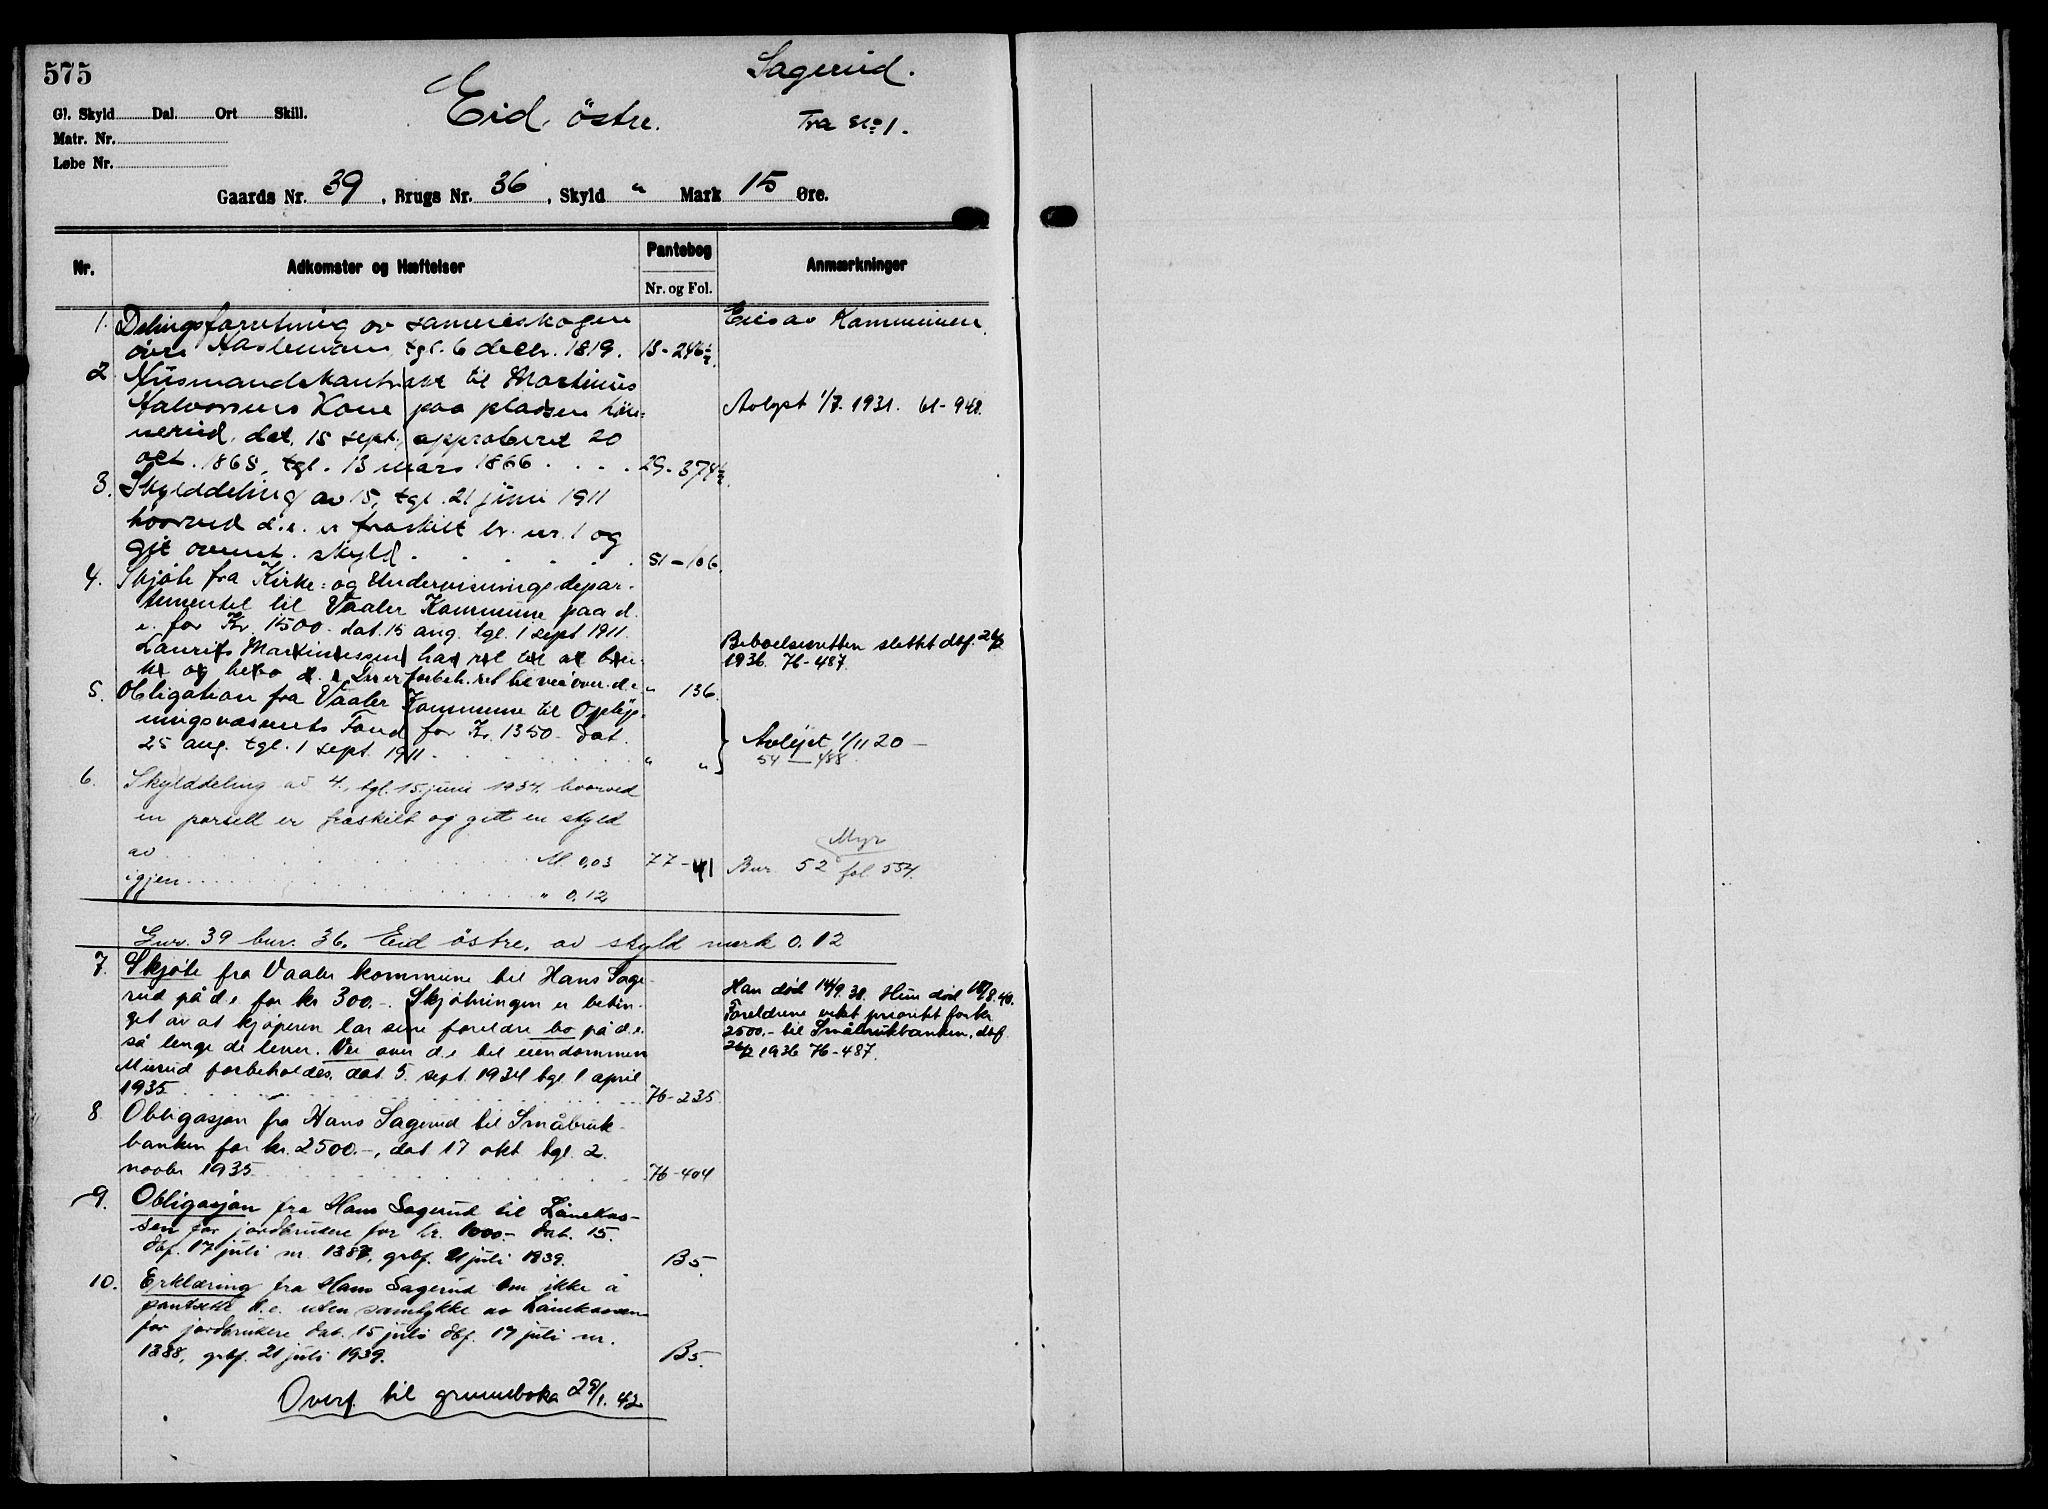 575
Eid, östre.
Sagerud.
Fra No 1.
Gl. Skyld Dal. Ort Skill.
Matr. Nr.
Løbe Nr.
Gaards Nr. 39, Brugs Nr. 36, Skyld " Mark 15 Øre.
Nr. Adkomster og Hæftelser Pantebog Nr. og Fol. Anmærkninger
1. Delingsforretning ov sameieskogen Eies av Kommunen.
øvre Haslemoen, tgl. 6 decbr. 1819. 13-246½.
2 Husmandskontrakt til Martinus
Halvorsens Kone paa pladsen
nerud, dat. 15 sept, approberet 20 Avlyst 1/7. 1931. 61-948.
oct. 1865, tgl. 13 mars 1866. 29-374½.
3. Skylddeling av 15, tgl. 21 juni 1911
hvorved d.e. er fraskilt br. nr. 1 og
git ovennt. skyld. 51-106.
4. Skjöte fra Kirke- og Undervisningsdepar-
tementet til Vaaler Kommune paa d.
e. for Kr. 1500. dat. 15 aug. tgl. 1 sept 1911.
Laurits Martinussen har ret til at bru- Beboelsesretten slettet dbf. 26/2
ke og bebo d.e. forbeh. ret til vei over d.e. " 136. 1936. 76-487.
5. Obligation fra Vaaler Kommune til Oply-
ningsvæsenets Fond for Kr. 1350 dat.
25 aug. tgl. 1 sept. 1911. " " } Avlyst 1/11 20 - 54 - 488.
6. Skylddeling av 4., tgl. 15 juni 1934. hvorved
en parsell er fraskilt og gitt en skyld
av M. 0,03 77-41 Bnr. 52 Myr fol. 554.
igjen " 0,12
Gnr. 39 bnr. 36. Eid östre, av skyld mark 0.12
7. Skjöte fra Vaaler kommune til Hans Sage-
rud på d.e. for kr 300.-. Skjötningen er betin- Han död 14/9 38. Hun död 18/8 40.
get av at kjöperen lar sine foreldre bo på d.e. Foreldrene veket prioritet for kr
så lenge de lever. Vei over d.e. til eiendommen 2500.- til Småbrukbanken, dbf.
Murud forbeholdes, dat. 5. sept. 1934 tgl. 1 april 26/2 1936 76-487.
1935 76-235
8. Obligasjon fra Hans Sagerud til Småbruk-
banken for kr. 2500.-, dat 17 okt tgl. 2.
novbr 1935 76-404
9. Obligasjon fra Hans Sagerud til Lånekas-
sen for jordbrukere for kr. 1000.- dat. 15.
dbf. 17 juli nr. 1387, grbf. 21 juli 1939. B5.
10. Erklæring fra Hans Sagerud om ikke å
pantsette d.e. uten samtykke av Lånekassen
for jordbrukere dat. 15 juli dbf. 17 juli nr.
1388, grbf. 21 juli 1939. B5.
Overf. til grunnboka 29/1. 42